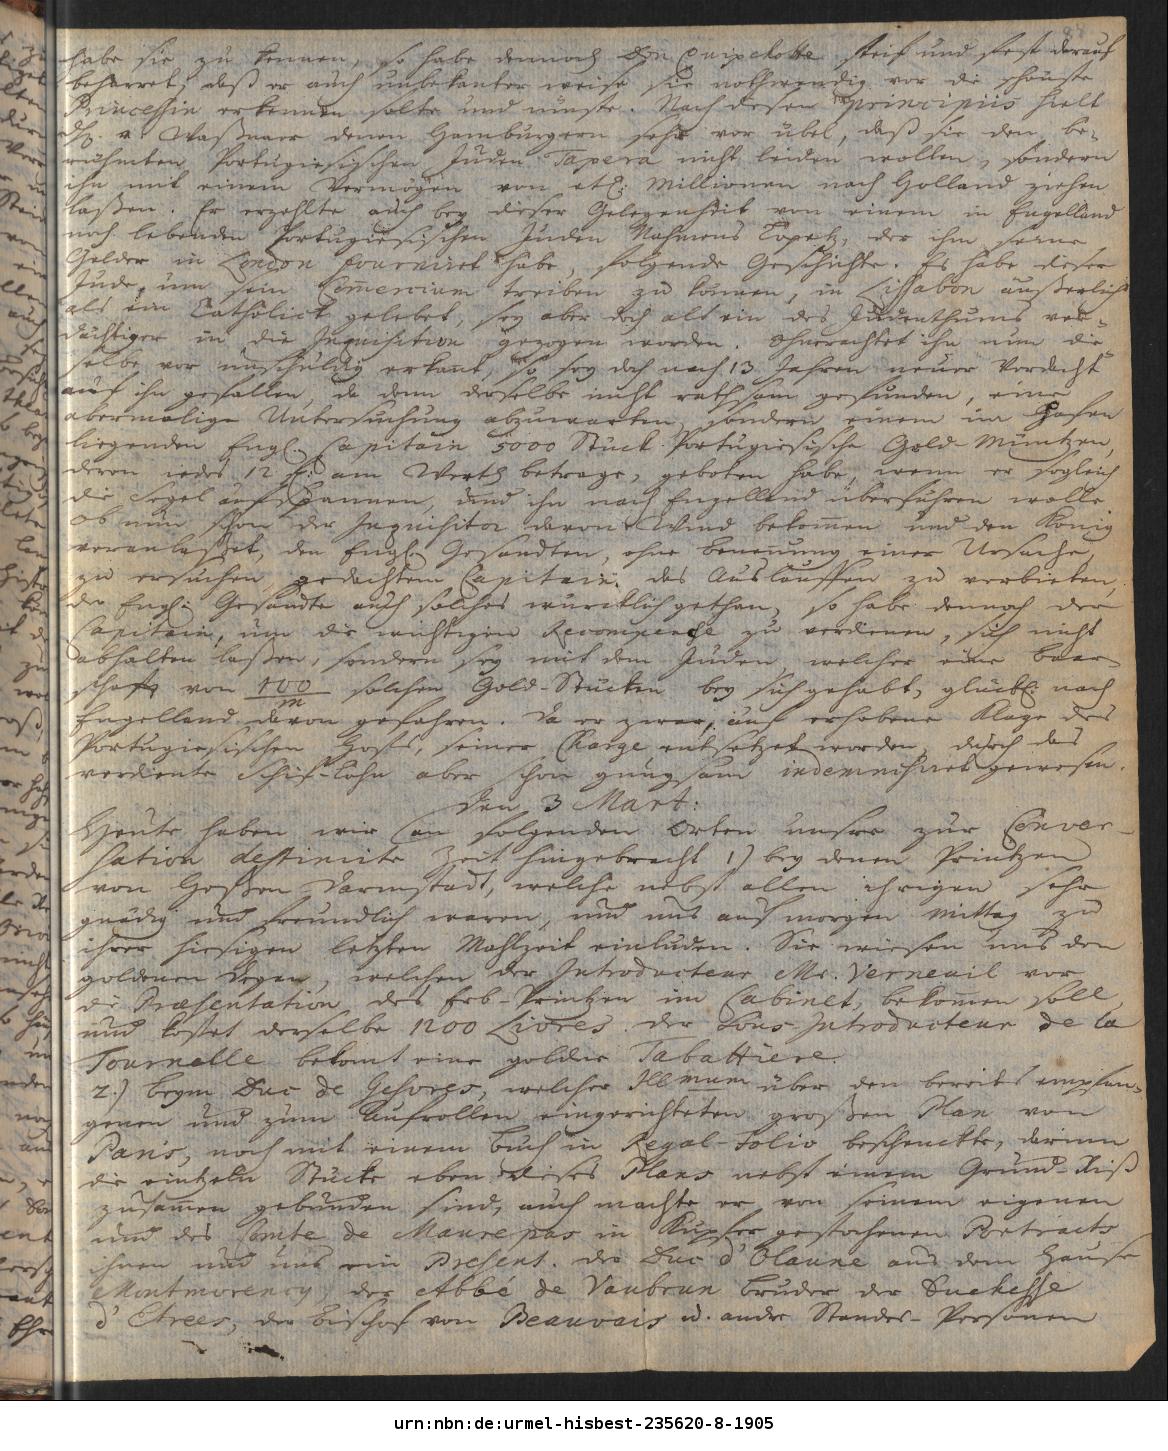 habe sie zu kennen, so habe dennoch Don Quipchotte steif und fest darauf
beharret, daß er auch unbekanter weise sie nothwendig vor die schönste
Princessin erkennen solte und müste. Nach diesen principiis hielt
H. v. Waßnaer denen Hamburgern sehr vor übel, daß sie den be-
rühmten Portugiesischen Juden Tapera nicht leiden wollen, sondern
ihn mit einem Vermögen von etl. Millionen nach Holland ziehen
laßen. Er erzehlte auch bey dieser Gelegenheit von einem in Engelland
noch lebenden Portugiesischen Juden Nahmens Lopetz, der ihm seine
Gelder in London fourniret habe, folgende Geschichte. Es habe dieser
Jude, um sein Commercium treiben zu können, in Lissabon äußerlich
als ein Catholick gelebet, sey aber doch als ein des Judenthums ver-
dächtiger in die Inquisition gezogen worden. Ohnerachtet ihn nun die-
selbe vor unschuldig erkant, so sey doch nach 13 Jahren neuer Verdacht
auf ihn gefallen, da denn derselbe nicht rathsam gefunden, eine
abermalige Untersuchung abzuwarten, sondern einem im Hafen
liegenden Engl. Capitain 5000 Stück Portugiesische Gold-Müntzen,
deren iedes 12 fl. am Werth betrage, geboten habe, wenn er sogleich
die Segel aufspannen, und ihn nach Engelland überführen wolle.
Ob nun schon der Inquisitor davon Wind bekommen und den König
veranlaßet, den Engl. Gesandten, ohne Benennung einer Ursache,
zu ersuchen, gedachtem Capitain das Auslauffen zu verbieten,
der Engl. Gesandte auch solches würcklich gethan, so habe dennoch der
Capitain, um die wichtigen Recompense zu verdienen, sich nicht
abhalten laßen, sondern sey mit dem Juden, welcher eine baar-
schafft von 100/m solchen Gold-Stücken bey sich gehabt, glückl. nach
Engelland davon gefahren. Da er zwar, auf erhobene Klage des
Portugiesischen Hofs, seiner Charge entsetzet worden, durch das
verdiente Schif-Lohn aber schon gnugsam indemnisiret gewesen.
Den 3 Mart:
Heute haben wir an folgenden Orten unsre zur Conver-
sation destinirte Zeit hingebracht 1) bey denen Printzen
von Heßen Darmstadt, welche nebst allen ihrigen sehr
gnädig und freundlich waren, und uns auf morgen Mittag zu
ihrer hiesigen letzten Mahlzeit einluden. Sie wiesen uns den
goldenen Degen, welchen der Introducteur Mr. Verneuil vor
die Præsentation des Erb-Printzen im Cabinet, bekommen soll,
und kostet derselbe 1200 Livres. Der Sous-Introducteur de la
Tournelle bekomt eine goldne Tabattiere.
2.) beym Duc de Gesvres, welcher Illmum über den bereits empfan-
genen und zum Aufrollen eingerichteten großen Plan von
Paris, noch mit einem Buch in Regal-Folio beschenckte, darinn
die eintzeln Stücke eben dieses Plans nebst einem Grund-Riß
zusammen gebunden sind, auch machte er von seinem eigenen
und des Comte de Maurepas in Kupfer gestochenen Portraits
ihnen und uns ein Present. Der Duc d'Olanne aus dem Hause
Montmorency, der Abbé de Vaubrun Bruder der Duchesse
d'Etrees, der Bischof von Beauvais u. andre Standes-Personen
urn:nbn:de:urmel-hisbest-235620-8-1905